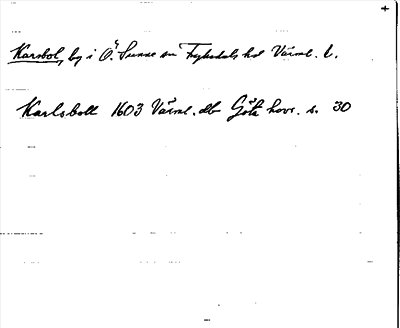 Karsbol, by i Ö. Sunne sn Fryksdals hd Värml. l.
Karlsboll 1603 Värml. db Göta hovr. s. 30